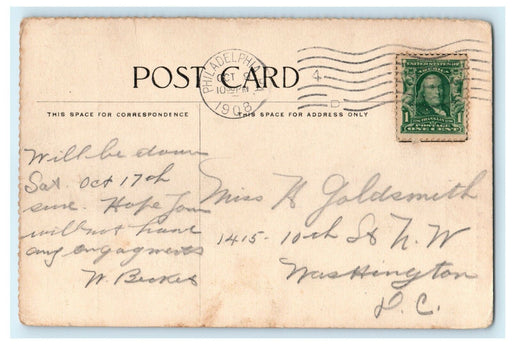 POST CARD
PHILADELPHIA
OCT
10 PM
1908
4
D
UNITED STATES OF AMERICA
1 1
POSTAGE
ONE CENT
THIS SPACE FOR CORRESPONDENCE
THIS SPACE FOR ADDRESS ONLY
Will be down
Sat. Oct 17th
sure. Hope you
will not have
any engagments
W. Becker
Miss H Goldsmith
1415- 10th St N.W
Washington
D.C.